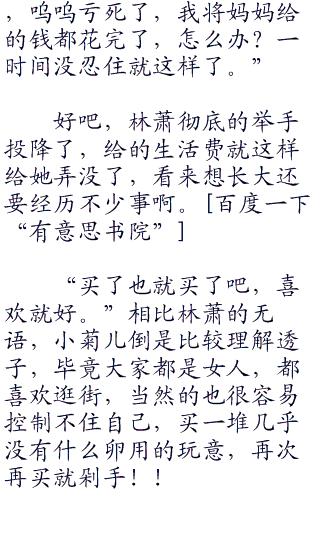 ，呜呜亏死了，我将妈妈给
的钱都花完了，怎么办？一
时间没忍住就这样了。”
好吧，林萧彻底的举手
投降了，给的生活费就这样
给她弄没了，看来想长大还
要经历不少事啊。[百度一下
“有意思书院”]
“买了也就买了吧，喜
欢就好。”相比林萧的无
语，小菊儿倒是比较理解透
子，毕竟大家都是女人，都
喜欢逛街，当然的也很容易
控制不住自己，买一堆几乎
没有什么卵用的玩意，再次
再买就剁手！！